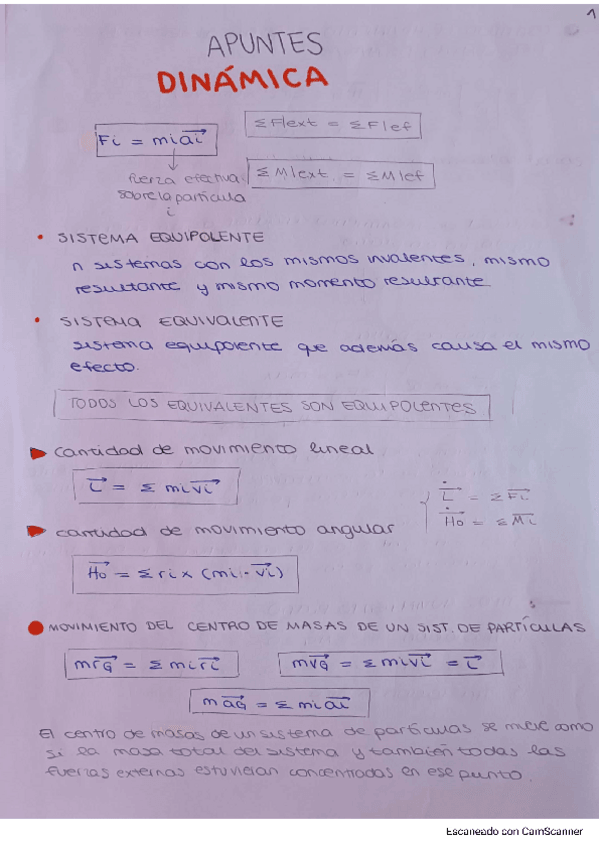 1
APUNTES
DINÁMICA
Fi = mi a⃗i
ΣF|ext = ΣF|ef
fuerza efectiva
sobre la partícula
i
ΣM|ext. = ΣM|ef
• SISTEMA EQUIPOLENTE
n sistemas con los mismos invalentes, mismo
resultante y mismo momento resultante
• SISTEMA EQUIVALENTE
sistema equipolente que además causa el mismo
efecto.
TODOS LOS EQUIVALENTES SON EQUIPOLENTES
cantidad de movimiento lineal
L⃗ = Σ mi v⃗i
L̇⃗ = ΣF⃗i
Ḣo⃗ = ΣM⃗i
cantidad de movimiento angular
H⃗o = Σ ri x (mi · v⃗i)
MOVIMIENTO DEL CENTRO DE MASAS DE UN SIST. DE PARTÍCULAS
m r⃗G = Σ mi r⃗i
m v⃗G = Σ mi v⃗i = L⃗
m a⃗G = Σ mi a⃗i
El centro de masas de un sistema de partículas se mueve como
si la masa total del sistema y también todas las
fuerzas externas estuvieran concentradas en ese punto.
Escaneado con CamScanner